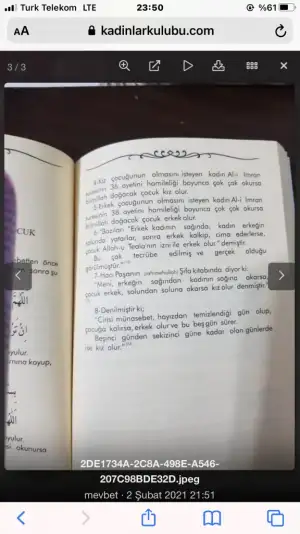 Turk Telekom LTE 23:50 %61
AA kadinlarkulubu.com
3 / 3
4-Kız çocuğunun olmasını isteyen kadın Al-i İmran
36. ayetini hamileliği boyunca çok çok okursa
doğacak çocuk kız olur.
5-Erkek çocuğunun olmasını isteyen kadın Al-i İmran
38. ayetini hamileliği boyunca çok çok okursa
doğacak çocuk erkek olur.
"Erkek kadının sağında, kadın erkeğin
solunda yatarlar, sonra erkek kalkıp, cima ederlerse,
çocuk Allah-u Teala'nın izni ile erkek olur." demiştir.
Bu çok tecrübe edilmiş ve gerçek olduğu
görülmüştür.
7-Hacı Paşanın Şifa kitabında diyor ki:
"Meni, erkeğin sağından kadının sağına akarsa,
çocuk erkek, solundan soluna akarsa kız olur denmiştir."
8-Denilmiştir ki;
"Cinsi münasebet, hayızdan temizlendiği gün olup,
çocuğa kalırsa, erkek olur ve bu beş gün sürer.
Beşinci günden sekizinci güne kadar olan günlerde
ise kız olur."
ÇUK
önce
sonra şu
yulur.
kayup,
yulur.
okunursa
2DE1734A-2C8A-498E-A546-
207C98BDE32D.jpeg
mevbet · 2 Şubat 2021 21:51